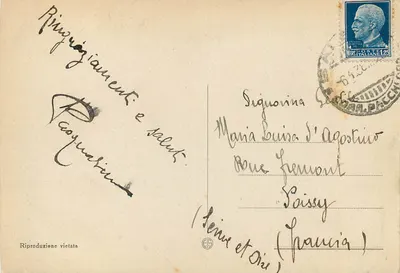 Ringraziamenti e saluti
Pasqualina
Signorina
Maria Luisa d'Agostino
Rue Fremont
Poissy
(Seine et Oise)
(Francia)
Riproduzione vietata